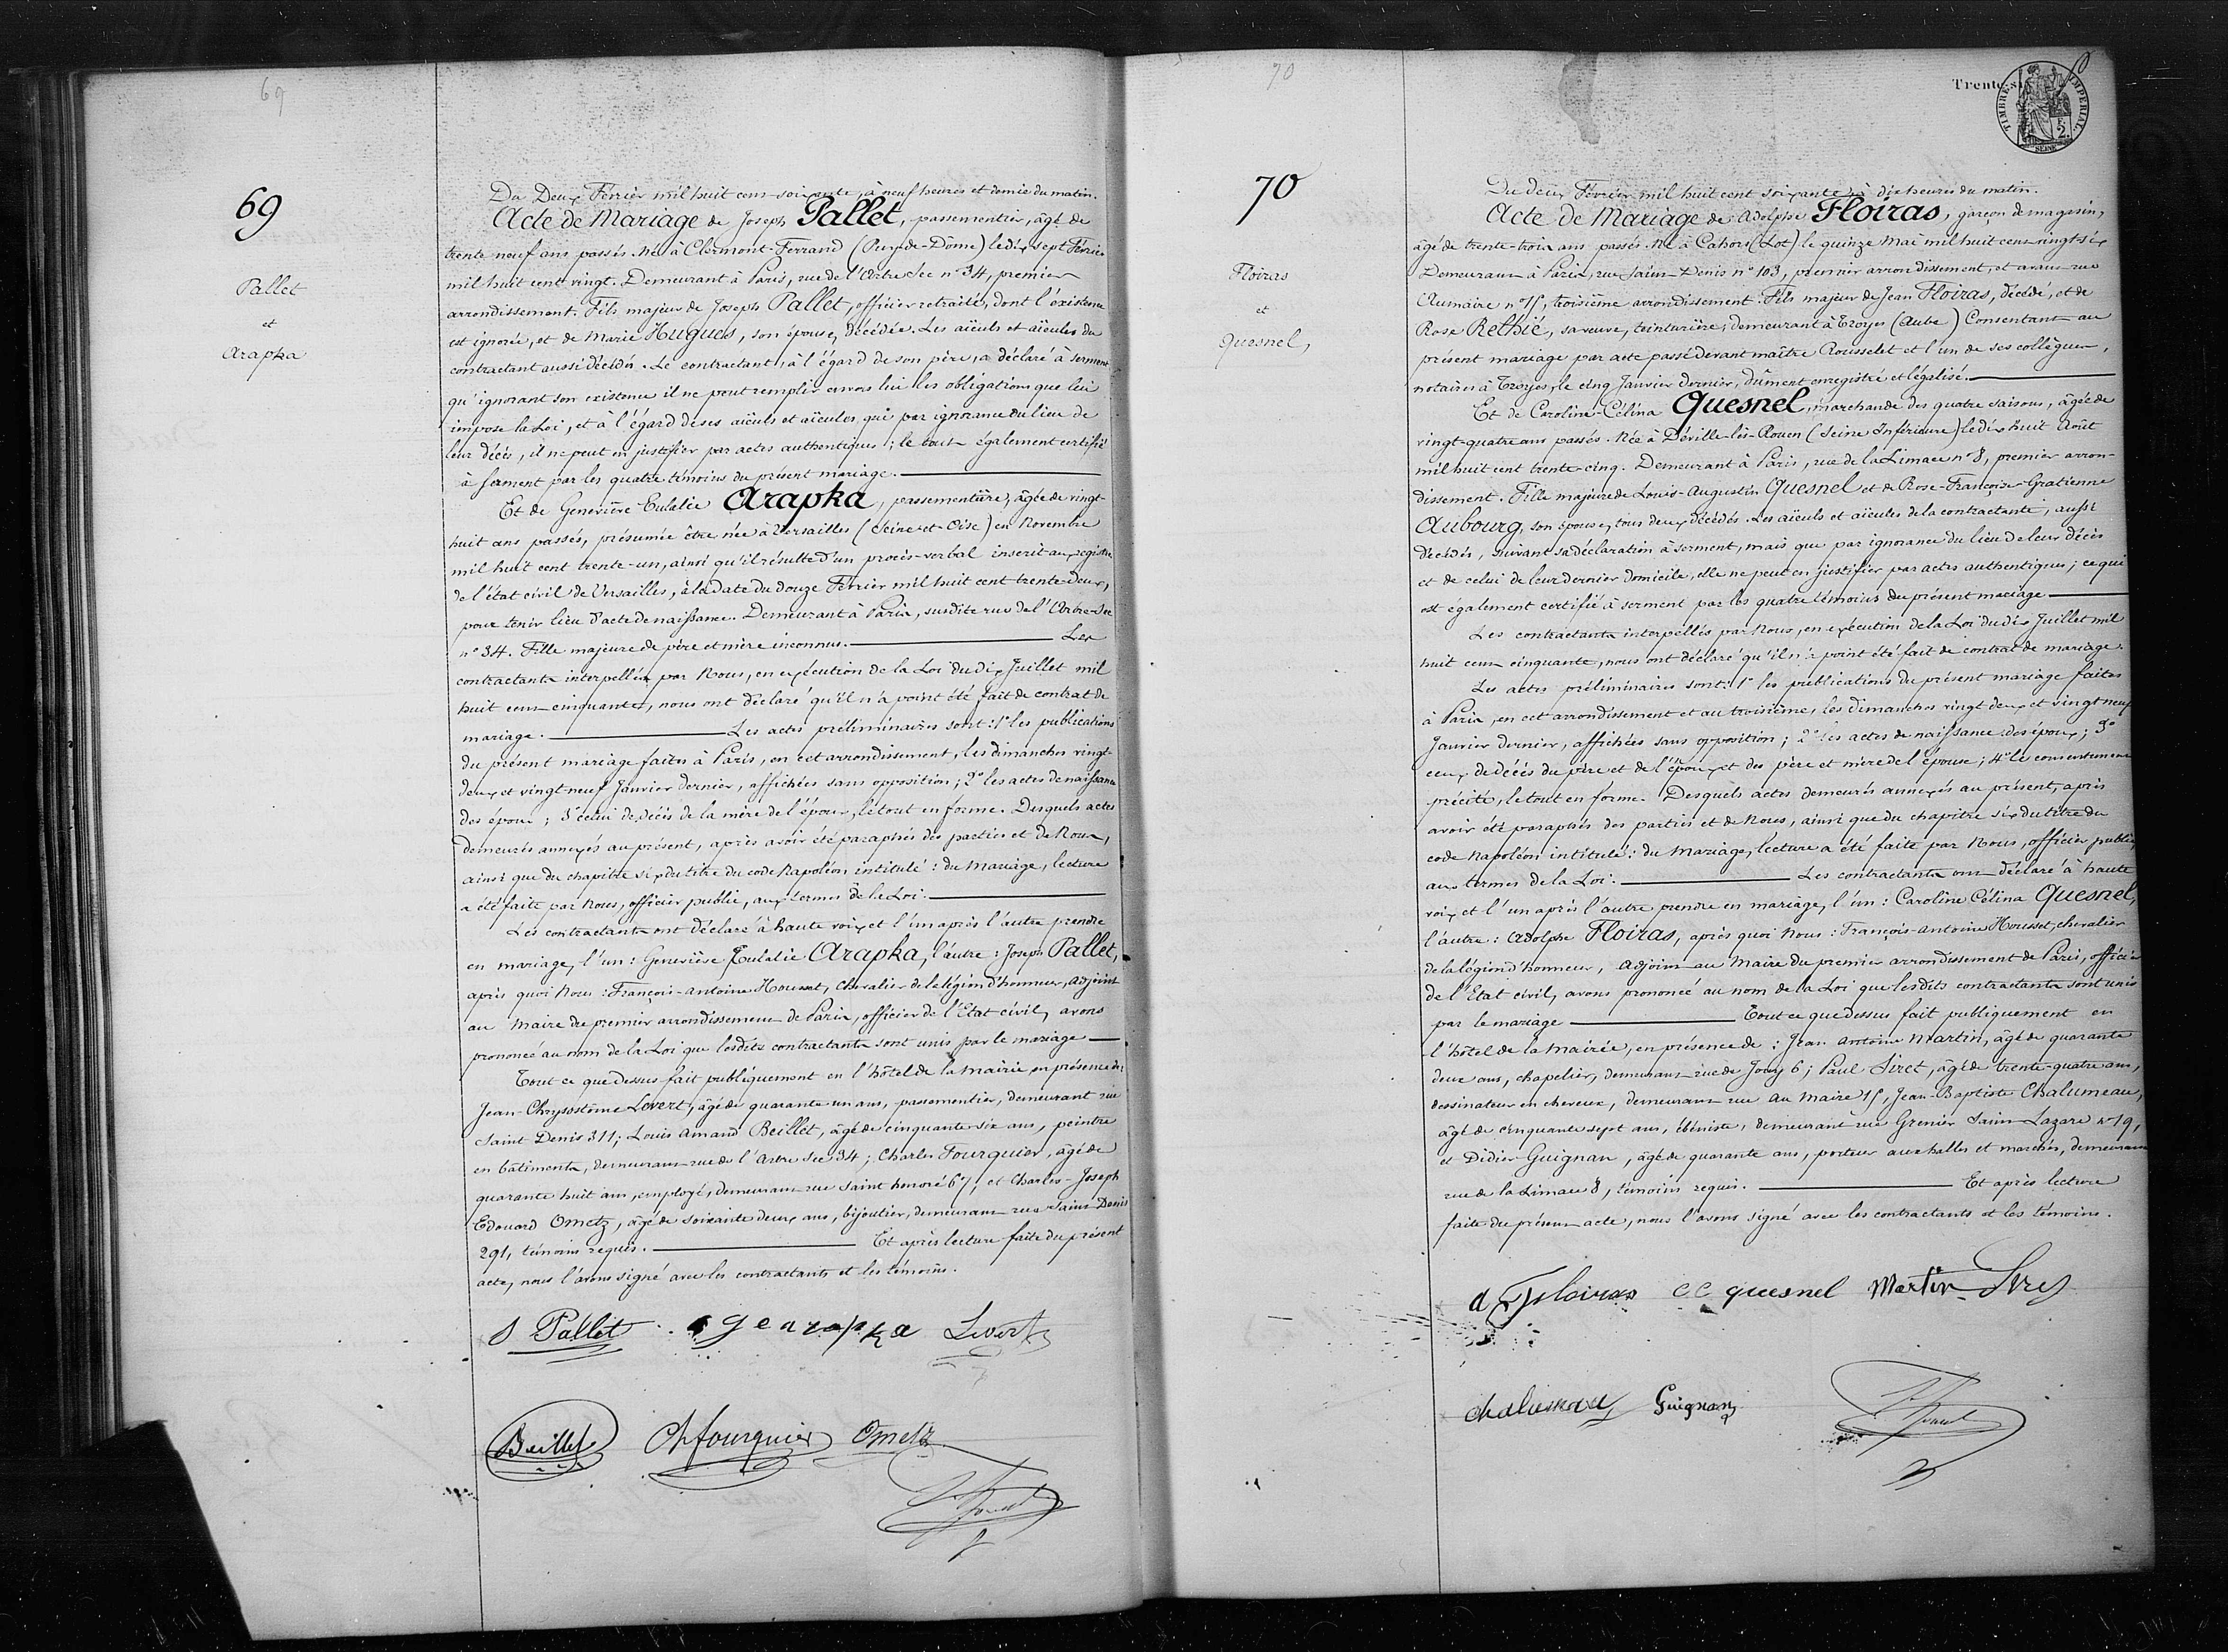 69
69
Pallet
et
Arapka
Du Deux Février mil huit cent soixante, à neuf heures et demie du matin.
Acte de Mariage de Joseph Pallet, passementier, âgé de
trente neuf ans passés. Né à Clermont-Ferrand (Puy-de-Dôme) le dix sept Février
mil huit cent vingt. Demeurant à Paris, rue de l'Arbre Sec n° 34, premier
arrondissement. Fils majeur de Joseph Pallet, officier retraité, dont l'existence
est ignorée, et de Marie Hugues, son épouse, décédée. Les aïeuls et aïeules du
contractant aussi décédés. Le contractant, à l'égard de son père, a déclaré à serment
qu'ignorant son existence il ne peut remplir envers lui les obligations que lui
impose la Loi, et à l'égard de ses aïeuls et aïeules, que par ignorance du lieu de
leur décès, il ne peut en justifier par actes authentiques; le tout également certifié
à serment par les quatre témoins du présent mariage.
Et de Geneviève Eulalie Arapka, passementière, âgée de vingt-
huit ans passés, présumée être née à Versailles (Seine-et-Oise) en Novembre
mil huit cent trente-un, ainsi qu'il résulte d'un procès-verbal inscrit aux registres
de l'état civil de Versailles, à la date du douze Février mil huit cent trente-deux,
pour tenir lieu d'acte de naissance. Demeurant à Paris, susdite rue de l'Arbre-Sec
n° 34. Fille majeure de père et mère inconnus. Les
contractants interpellés par Nous, en exécution de la Loi du dix Juillet mil
huit cent cinquante, nous ont déclaré qu'il n'a point été fait de contrat de
mariage. Les actes préliminaires sont: 1° les publications
du présent mariage faites à Paris, en cet arrondissement, les dimanches vingt-
deux et vingt-neuf Janvier dernier, affichées sans opposition; 2° les actes de naissance
des époux; 3° celui de décès de la mère de l'époux, le tout en forme. Desquels actes
demeurés annexés au présent, après avoir été paraphés des parties et de Nous,
ainsi que du chapitre six du titre du code Napoléon intitulé: du Mariage, lecture
a été faite par Nous, officier public, aux termes de la Loi.
Les contractants ont déclaré à haute voix et l'un après l'autre prendre
en mariage, l'un: Geneviève Eulalie Arapka, l'autre: Joseph Pallet,
après quoi Nous: François-Antoine Housset, chevalier de la légion d'honneur, Adjoint
au Maire du premier arrondissement de Paris, officier de l'Etat civil, avons
prononcé au nom de la Loi que lesdits contractants sont unis par le mariage
Tout ce que dessus fait publiquement en l'hôtel de la Mairie en présence de
Jean-Chrysostôme Levert, âgé de quarante un ans, passementier, demeurant rue
Saint Denis 311; Louis Amand Beillet, âgé de cinquante six ans, peintre
en bâtiments, demeurant rue de l'Arbre Sec 34; Charles Fourquier, âgé de
quarante huit ans, employé, demeurant rue Saint honoré 67, et Charles-Joseph
Edouard Ometz, âgé de soixante deux ans, bijoutier, demeurant rue Saint Denis
291, témoins requis. Et après lecture faite du présent
acte, nous l'avons signé avec les contractants et les témoins.
J Pallet g e arapka Levert
Beillet Ch fourquier Ometz
70
70
Floiras
et
Quesnel,
TIMBRE IMPERIAL
2
SEINE
Du deux Février mil huit cent soixante à dix heures du matin.
Acte de Mariage de Adolphe Floiras, garçon de magasin,
âgé de trente-trois ans passés. Né à Cahors (Lot) le quinze Mai mil huit cent vingt-six
Demeurant à Paris, rue Saint-Denis n° 103, premier arrondissement, et avant rue
Aumaire n° 15, troisième arrondissement. Fils majeur de Jean Floiras, décédé, et de
Rose Rethié, sa veuve, teinturière, demeurant à Troyes (Aube) Consentant au
présent mariage par acte passé devant maître Rousselet et l'un de ses collègues,
notaires à Troyes, le cinq Janvier dernier, dûment enregistré et légalisé.
Et de Caroline-Célina Quesnel, marchande des quatre saisons, âgée de
vingt-quatre ans passés. Née à Déville-lès-Rouen (Seine Inférieure) le dix huit Août
mil huit cent trente-cinq. Demeurant à Paris, rue de la Limace n° 8, premier arron-
dissement. Fille majeure de Louis-Augustin Quesnel et de Rose-Françoise-Gratienne
Aubourg, son épouse, tous deux décédés. Les aïeuls et aïeules de la contractante, aussi
décédés, suivant sa déclaration à serment, mais que par ignorance du lieu de leur décès
et de celui de leur dernier domicile, elle ne peut en justifier par actes authentiques; ce qui
est également certifié à serment par les quatre témoins du présent mariage
Les contractants interpellés par Nous, en exécution de la Loi du dix Juillet mil
huit cent cinquante, nous ont déclaré qu'il n'a point été fait de contrat de mariage.
Les actes préliminaires sont: 1° les publications du présent mariage faites
à Paris, en cet arrondissement et au troisième, les dimanches vingt deux et vingt neuf
Janvier dernier, affichées sans opposition; 2° les actes de naissance des époux; 3°
ceux de décès du père de l'époux et des père et mère de l'épouse; 4° le consentement
précité, le tout en forme. Desquels actes demeurés annexés au présent, après
avoir été paraphés des parties et de Nous, ainsi que du chapitre six du titre du
code Napoléon intitulé: du Mariage, lecture a été faite par Nous, officier public,
aux termes de la Loi. Les contractants ont déclaré à haute
voix et l'un après l'autre prendre en mariage, l'un: Caroline Célina Quesnel,
l'autre: Adolphe Floiras, après quoi Nous: François-Antoine Housset, chevalier
de la légion d'honneur, Adjoint au Maire du premier arrondissement de Paris, officier
de l'Etat civil, avons prononcé au nom de la Loi que lesdits contractants sont unis
par le mariage Tout ce que dessus fait publiquement en
l'hôtel de la Mairie, en présence de: Jean Antoine Martin, âgé de quarante
deux ans, chapelier, demeurant rue de Jouy 6; Paul Siret, âgé de trente-quatre ans,
dessinateur en cheveux, demeurant rue au Maire 15, Jean-Baptiste Chalumeau,
âgé de cinquante sept ans, ébéniste, demeurant rue Grenier Saint Lazare n° 19,
et Didier Guignan, âgé de quarante ans, porteur aux halles et marchés, demeurant
rue de la Limace 8, témoins requis. Et après lecture
faite du présent acte, nous l'avons signé avec les contractants et les témoins.
a Floiras c c quesnel Martin Siret
chalumeau Guignan